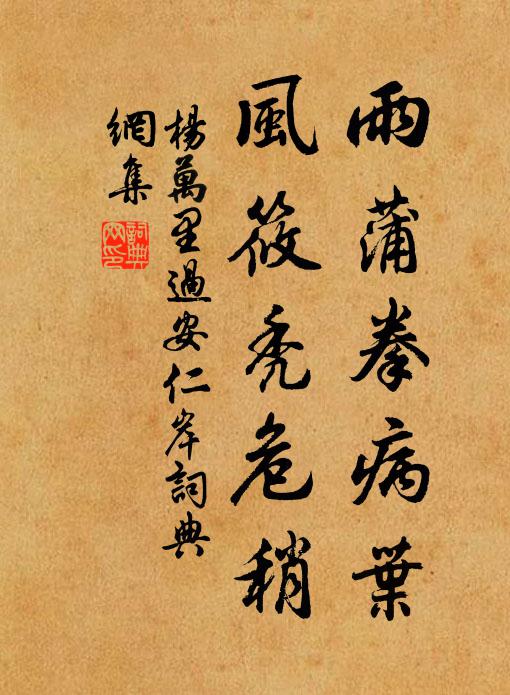 雨蒲拳病葉
風筱禿危稍
楊萬里過安仁岸詞典
網集
詞典
网印